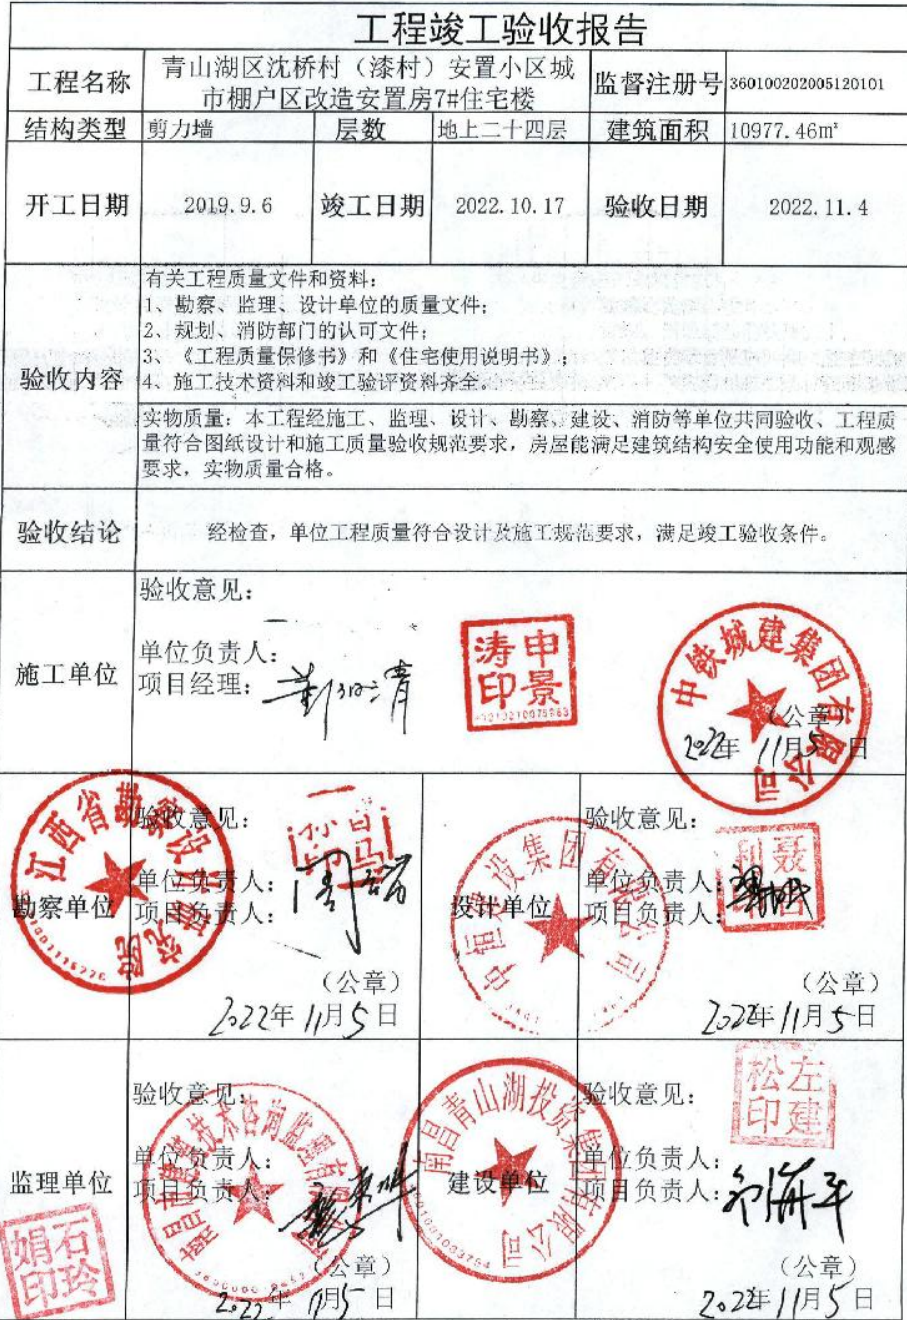 工程竣工验收报告
工程名称
青山湖区沈桥村（漆村）安置小区城
市棚户区改造安置房7#住宅楼
监督注册号
360100202005120101
结构类型
剪力墙
层数
地上二十四层
建筑面积
10977.46m²
开工日期
2019.9.6
竣工日期
2022.10.17
验收日期
2022.11.4
验收内容
有关工程质量文件和资料：
1、勘察、监理、设计单位的质量文件；
2、规划、消防部门的认可文件；
3、《工程质量保修书》和《住宅使用说明书》；
4、施工技术资料和竣工验评资料齐全。
实物质量：本工程经施工、监理、设计、勘察、建设、消防等单位共同验收、工程质
量符合图纸设计和施工质量验收规范要求，房屋能满足建筑结构安全使用功能和观感
要求，实物质量合格。
验收结论
经检查，单位工程质量符合设计及施工规范要求，满足竣工验收条件。
施工单位
验收意见：
单位负责人：
项目经理：
申景涛印
中铁城建集团有限公司
（公章）
2022年11月5日
勘察单位
江西省勘察设计研究院
验收意见：
单位负责人：
项目负责人：
（公章）
2022年11月5日
设计单位
中恒建设集团有限公司
验收意见：
单位负责人：
项目负责人：
（公章）
2022年11月5日
监理单位
石玲娟印
验收意见：
单位负责人：
项目负责人：
南昌市建筑技术咨询监理有限公司
（公章）
2022年11月5日
建设单位
南昌青山湖投资集团有限公司
3601001003764
验收意见：
单位负责人：
项目负责人：
左建松印
（公章）
2022年11月5日